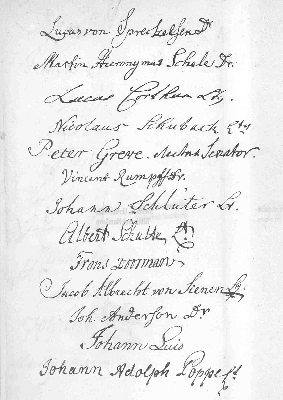 Lucas von Spreckelsen Dr
Martin Hieronymus Schele Dr.
Lucas Corthum Lt.
Nicolaus Schuback Lt.
Peter Greve. Senator.
Vincent Rumpff Lt.
Johann Schlüter Lt.
Albert Schulte
Frans
Jacob Albrecht von Sienen Lt.
Joh. Anderson Dr
Johann Luis
Johann Adolph Poppe Lt.